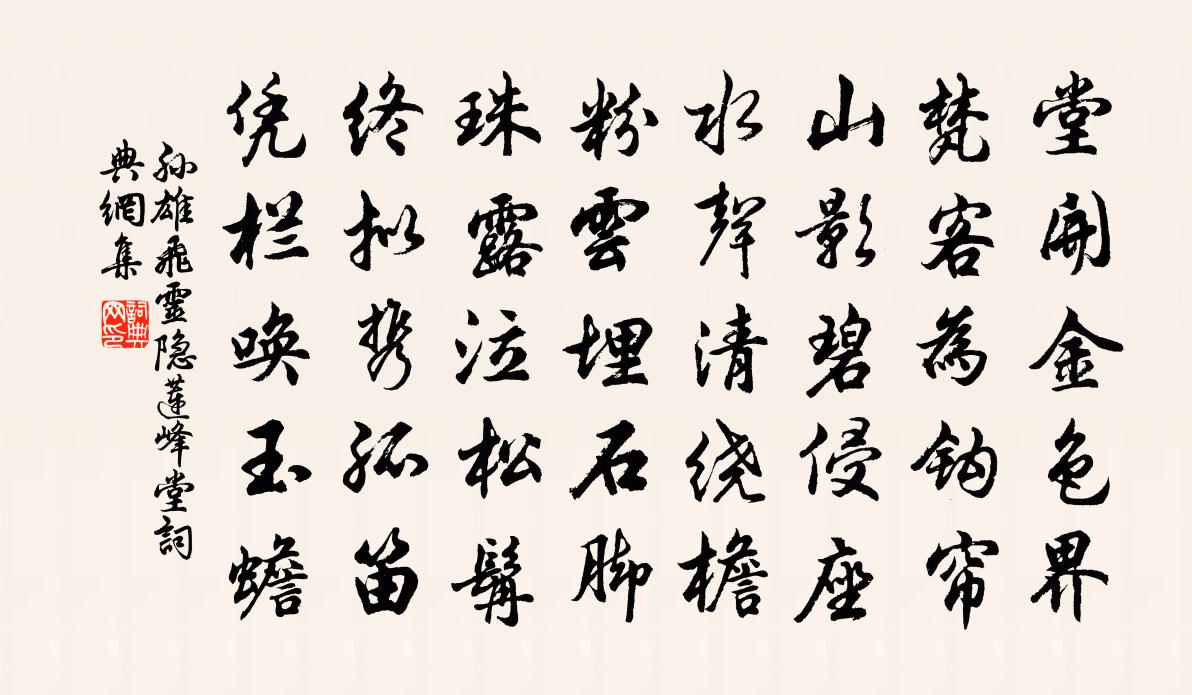 堂開金色界
梵客為鈎帘
山影碧侵座
水聲清绕檐
粉雲埋石脚
珠露泣松髯
终拟携孤笛
凭栏唤玉蟾
孙雄飛靈隐蓮峰堂詞
典網集
詞典网印